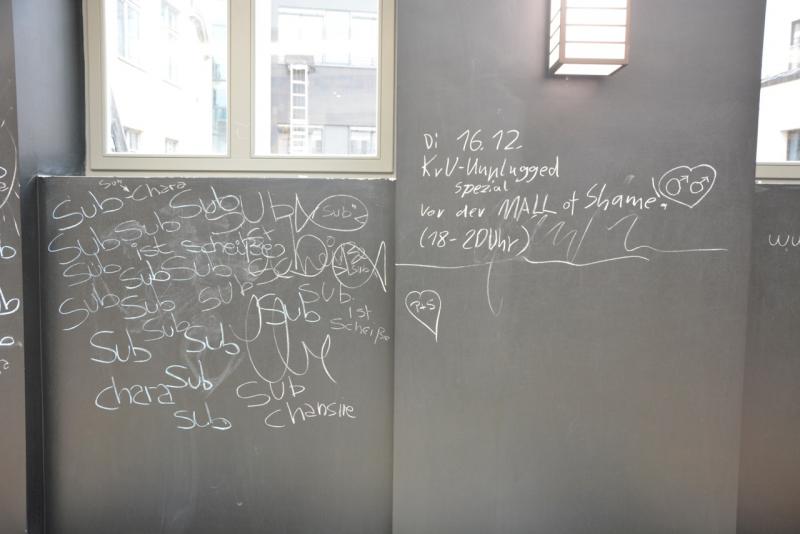 Sub
Sub-Chara
Sub Sub SUB Sub
Sub Sub
ist scheiße ist
Sub Sub Sub
Sub Sub Sub Sub Sub.
Sub Sub Sub ist
scheiße
Sub Sub
Chara Sub Sub
Sub Chansiie
Di 16.12.
KvU-Unplugged
spezial
vor der MALL of Shame!
(18-20Uhr)
P+S